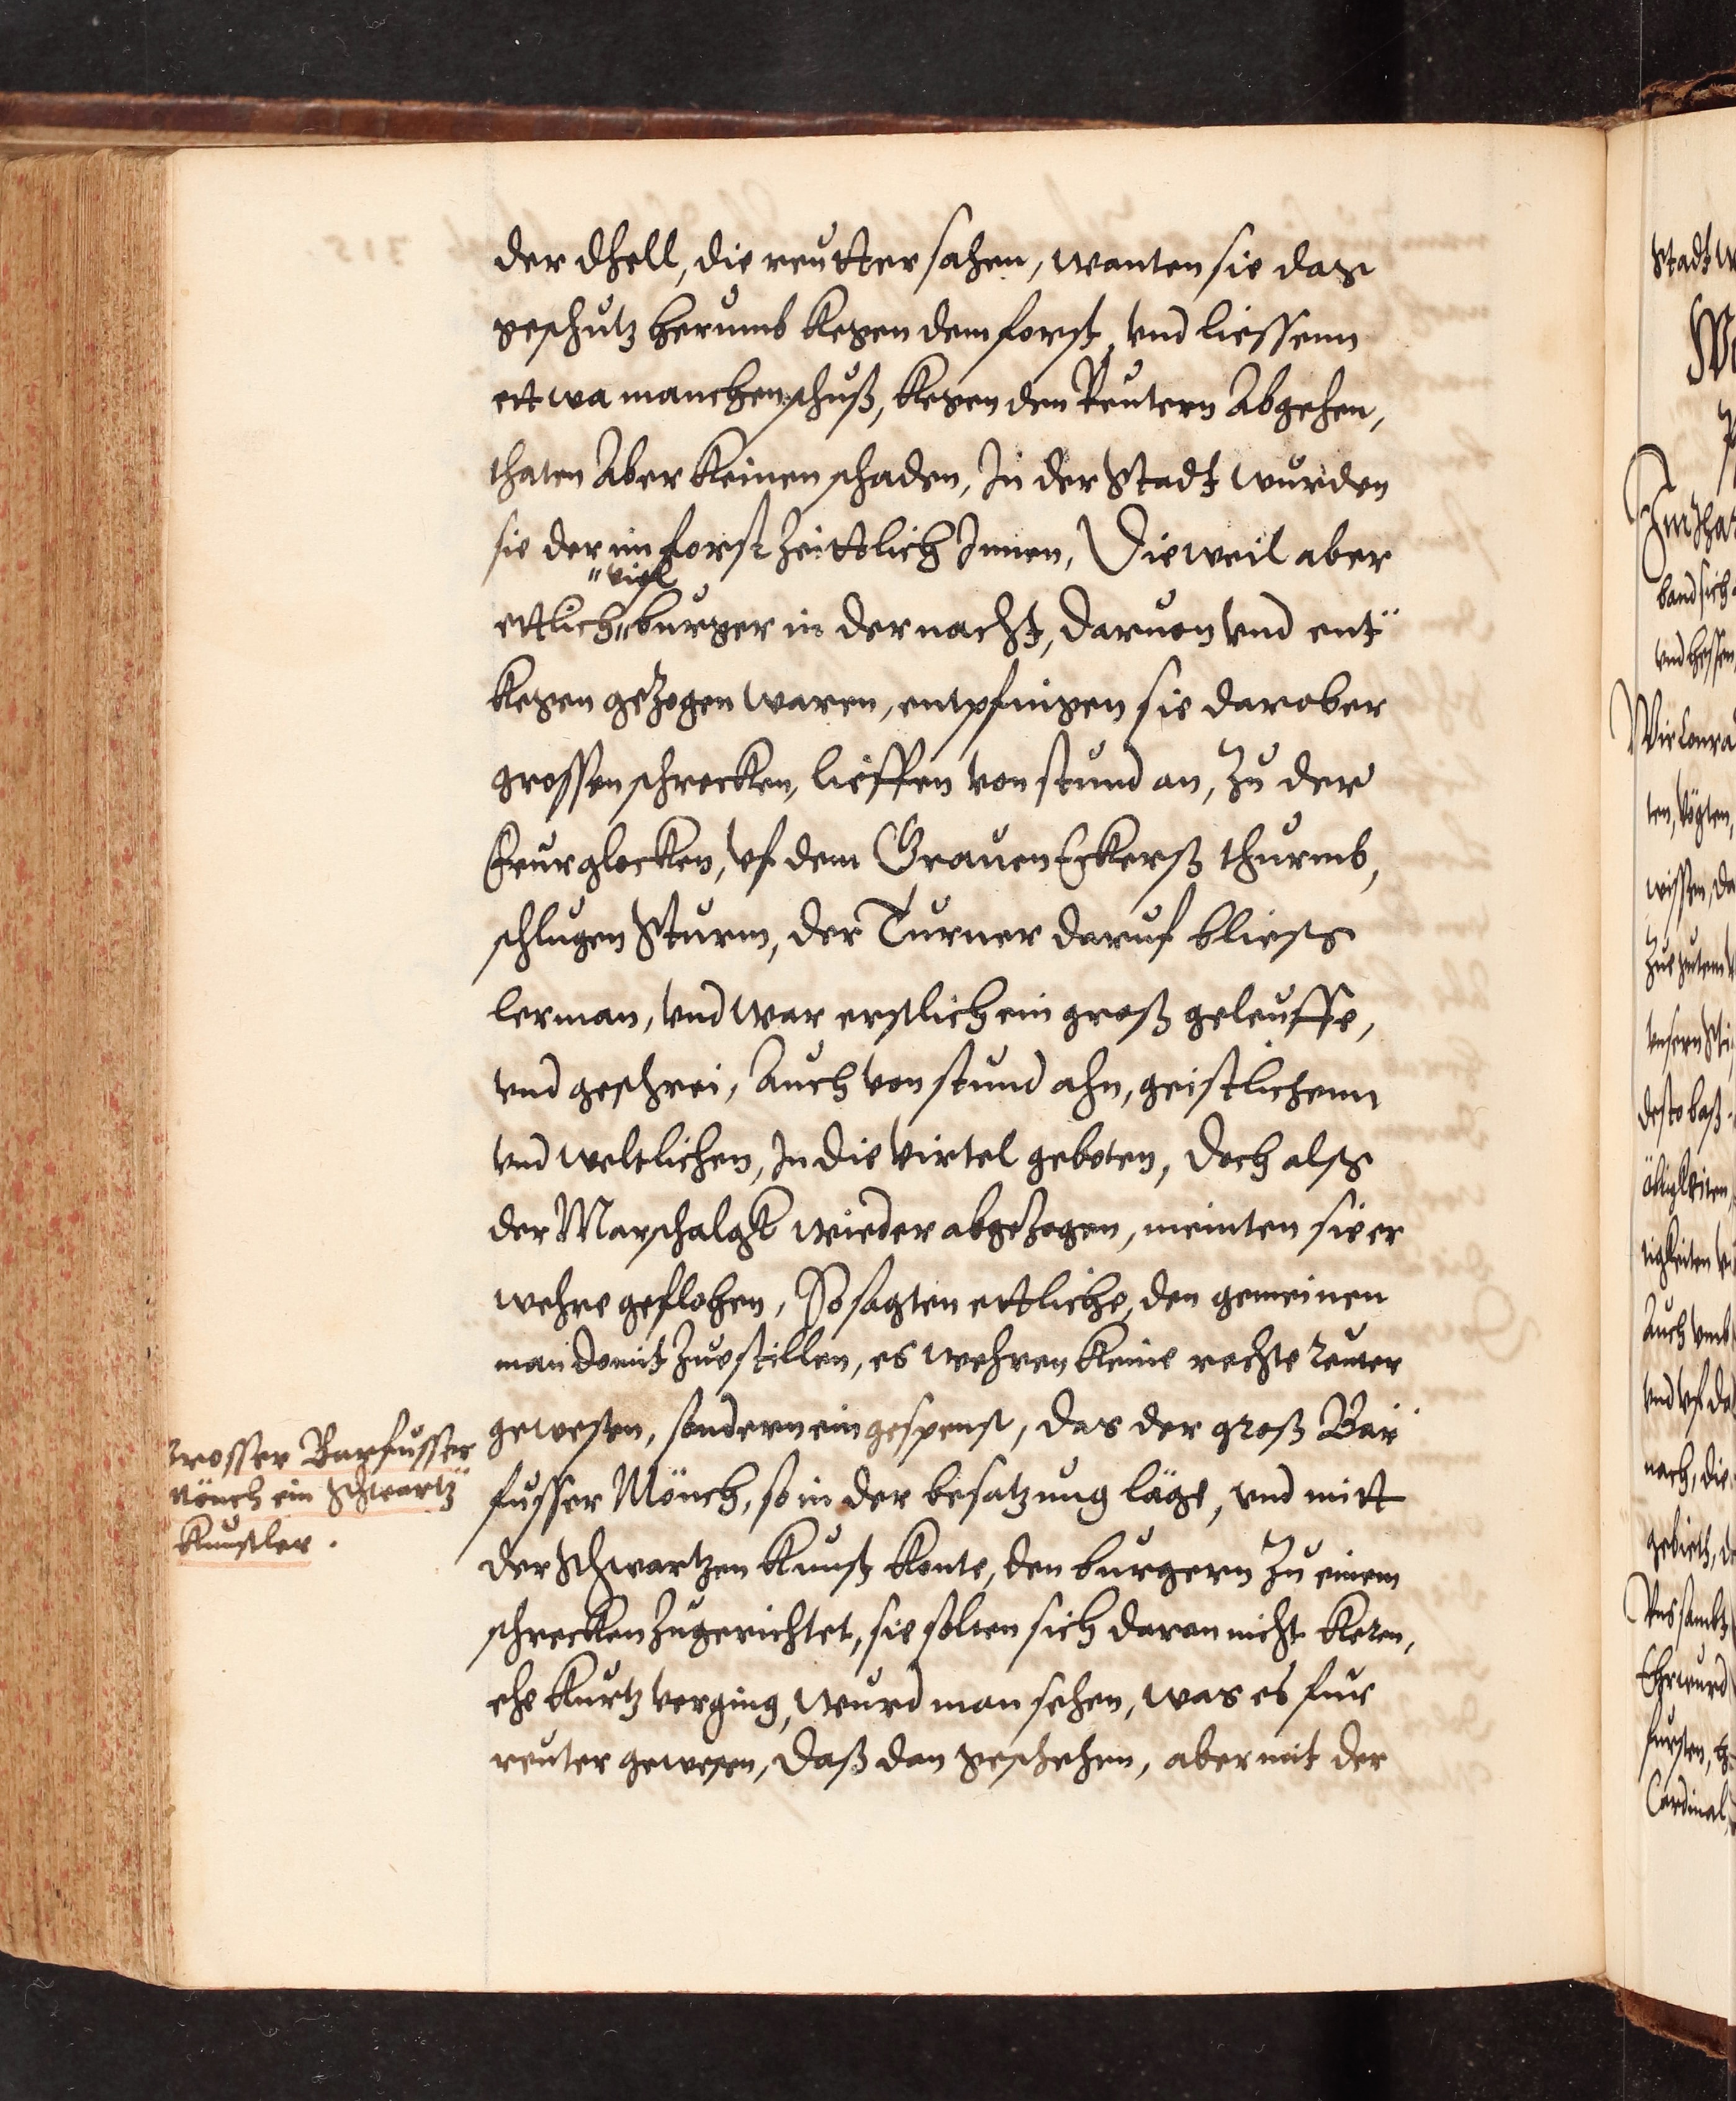 der dhell, die reutter sahen, wanten sie das
geschutz herumb kegen dem forst, vnd liessenn
ettwa manchen schuß, kegen den Reutern Abgehen,
thaten Aber keinen schaden, In der Stadt wurden
sie der im forst zeittlich Innen, Dieweil aber
"viel
ettlich" burger in der nacht, daruon vnd ent"
kegen gezogen waren, entpfingen sie darober
grossen schrecken, lieffen von stund an, zu der
Feurglocken, vf dem Grauen Eckerß thurmb,
schlugen Sturm, der Turner daruf bliess
lerman, vnd war erstlich ein groß geleuffe,
vnd geschrei, Auch von stund ahn, geistlichenn
vnd weltlichen, In die virtel geboten, doch alss
der Marschalgk wieder abgezogen, meinten sie er
wehre geflohen, So sagten ettliche, den gemeinen
man domit zuostillen, es wehren keine rechte reuter
gewesen, sondern ein gespenst, das der groß Bar"
fusser Mönch, so in der besatzung läge, vnd mitt
der Schwartzen kunst konte, den burgern zu einem
schrecken zugerichtet, sie solten sich daran nicht keren,
ehe kurtz verging, wurd man sehen, was es fur
reuter gewesen, daß dan geschehen, aber mit der
Grosser Barfusser
Mönch ein Schwartz"
kunstler.
Stadt
band sich
vnd hessen
Wir Conra
ten, Vögten,
wissen, da
desto baß
Auch vmb
nach, die
Cardinal,